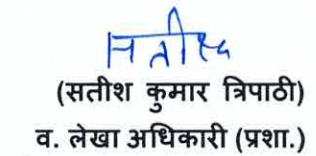 सतीश
(सतीश कुमार त्रिपाठी)
व. लेखा अधिकारी (प्रशा.)